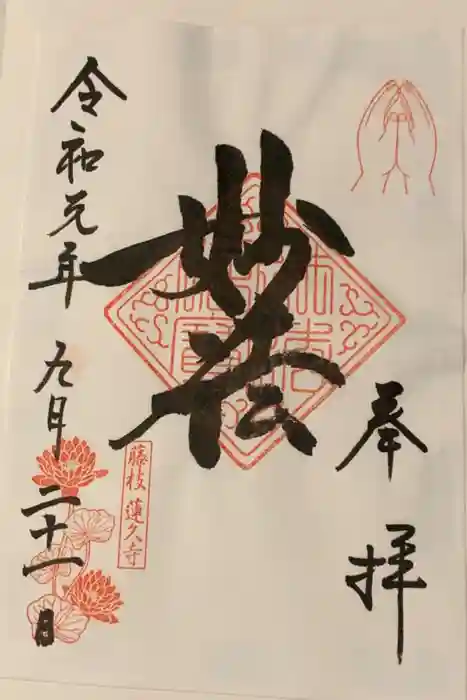 奉拝
妙法
藤枝 蓮久寺
令和元年九月二十一日